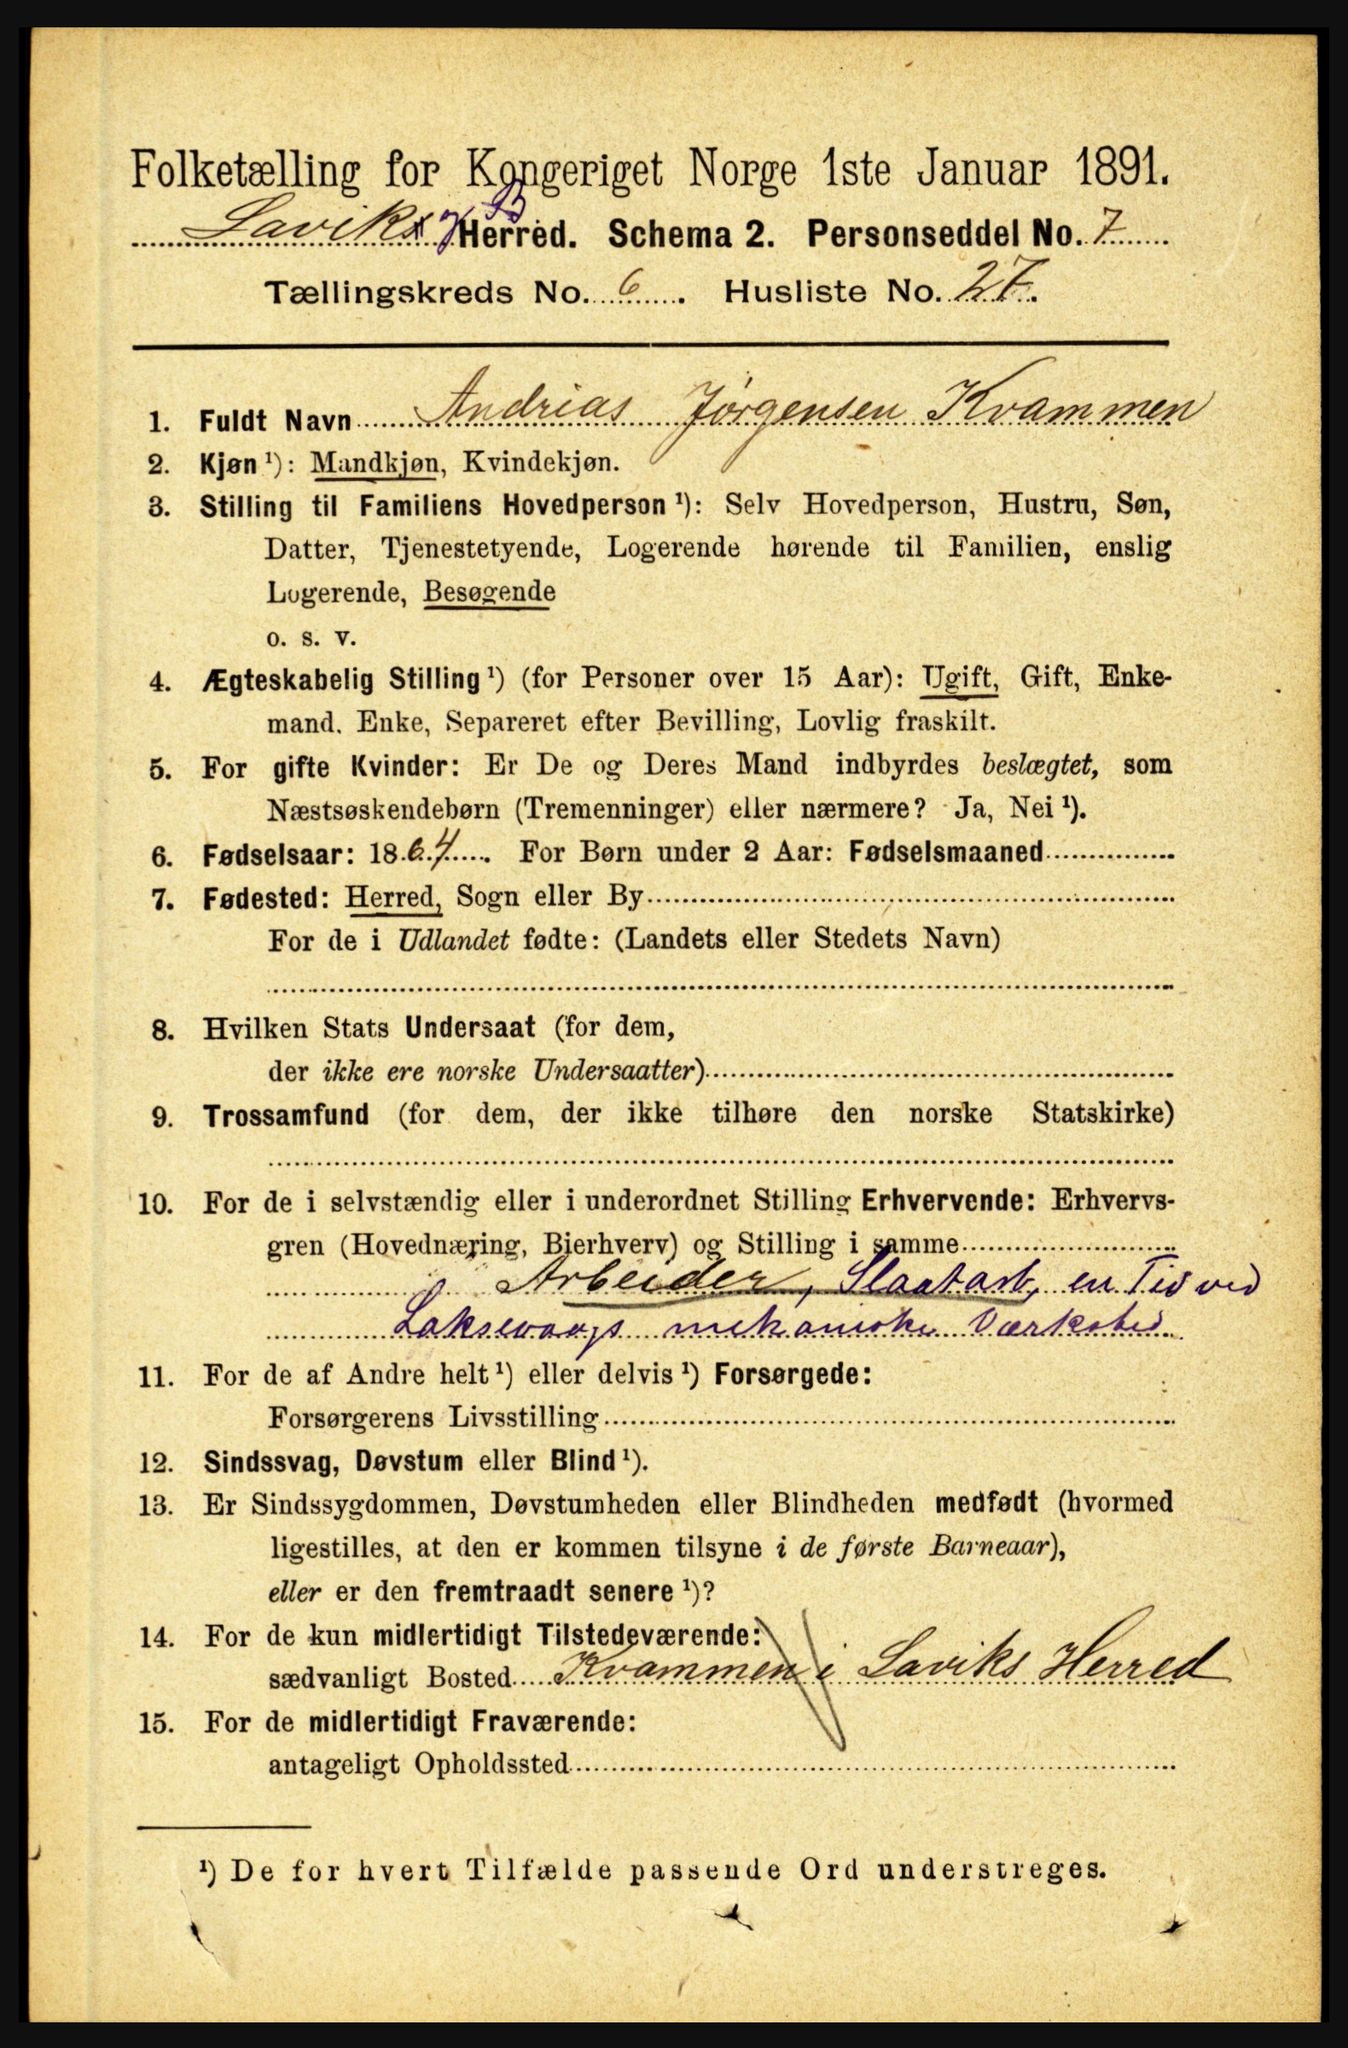 Folketælling for Kongeriget Norge 1ste Januar 1891.
Laviks og B Herred. Schema 2. Personseddel No. 7
Tællingskreds No. 6. Husliste No. 27.
1. Fuldt Navn Andrias Jørgensen Kvammen
2. Kjøn ¹): Mandkjøn, Kvindekjøn.
3. Stilling til Familiens Hovedperson ¹): Selv Hovedperson, Hustru, Søn,
Datter, Tjenestetyende, Logerende hørende til Familien, enslig
Logerende, Besøgende
o. s. v.
4. Ægteskabelig Stilling ¹) (for Personer over 15 Aar): Ugift, Gift, Enke-
mand, Enke, Separeret efter Bevilling, Lovlig fraskilt.
5. For gifte Kvinder: Er De og Deres Mand indbyrdes beslægtet, som
Næstsøskendebørn (Tremenninger) eller nærmere? Ja, Nei ¹).
6. Fødselsaar: 1864. For Børn under 2 Aar: Fødselsmaaned
7. Fødested: Herred, Sogn eller By
For de i Udlandet fødte: (Landets eller Stedets Navn)
8. Hvilken Stats Undersaat (for dem,
der ikke ere norske Undersaatter)
9. Trossamfund (for dem, der ikke tilhøre den norske Statskirke)
10. For de i selvstændig eller i underordnet Stilling Erhvervende: Erhvervs-
gren (Hovednæring, Bierhverv) og Stilling i samme
Arbeider, Slaatarb, en Tid ved
Laksevaags mekaniske Værksted
11. For de af Andre helt ¹) eller delvis ¹) Forsørgede:
Forsørgerens Livsstilling
12. Sindssvag, Døvstum eller Blind ¹).
13. Er Sindssygdommen, Døvstumheden eller Blindheden medfødt (hvormed
ligestilles, at den er kommen tilsyne i de første Barneaar),
eller er den fremtraadt senere ¹)?
14. For de kun midlertidigt Tilstedeværende:
sædvanligt Bosted Kvammen i Laviks Herred
15. For de midlertidigt Fraværende:
antageligt Opholdssted
¹) De for hvert Tilfælde passende Ord understreges.